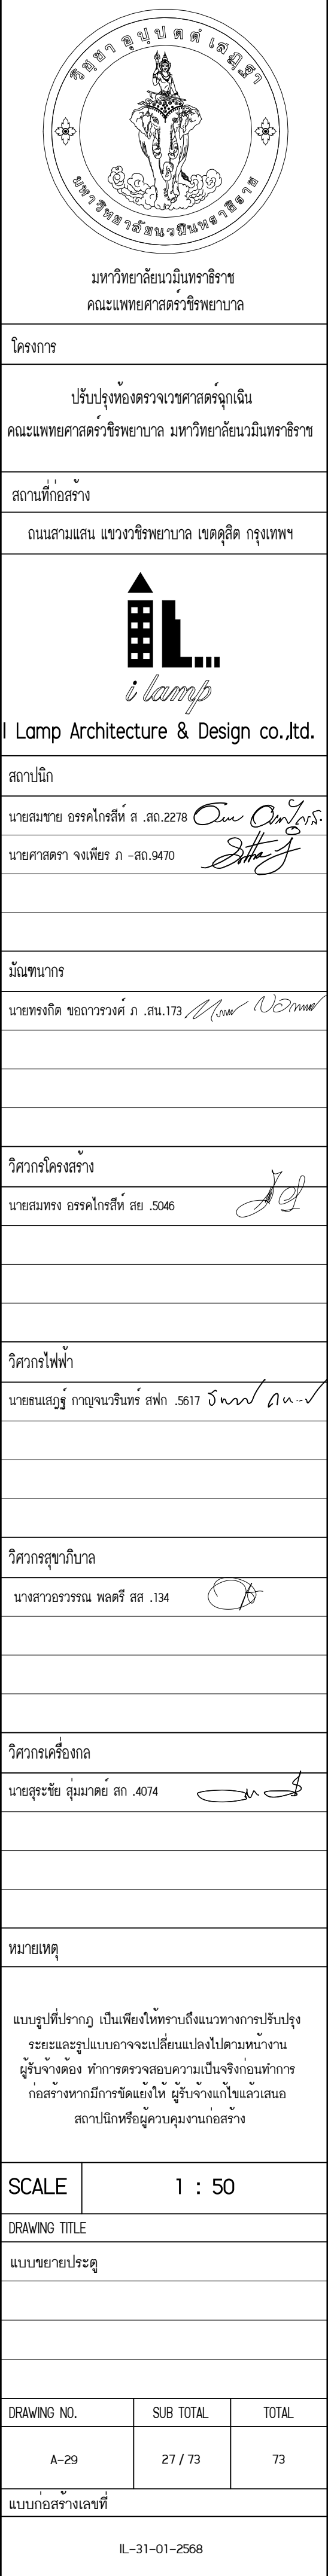 วิชฺชา อุปฺปตตํ เสฏฺฐา
มหาวิทยาลัยนวมินทราธิราช
มหาวิทยาลัยนวมินทราธิราช
คณะแพทยศาสตร์วชิรพยาบาล
โครงการ
ปรับปรุงห้องตรวจเวชศาสตร์ฉุกเฉิน
คณะแพทยศาสตร์วชิรพยาบาล มหาวิทยาลัยนวมินทราธิราช
สถานที่ก่อสร้าง
ถนนสามแสน แขวงวชิรพยาบาล เขตดุสิต กรุงเทพฯ
i lamp
I Lamp Architecture & Design co.,ltd.
สถาปนิก
นายสมชาย อรรคไกรสีห์ ส .สถ.2278
นายศาสตรา จงเพียร ภ -สถ.9470
มัณฑนากร
นายทรงกิต ขอถาวรวงศ์ ภ .สน.173
วิศวกรโครงสร้าง
นายสมทรง อรรคไกรสีห์ สย .5046
วิศวกรไฟฟ้า
นายธนเสฎฐ์ กาญจนวรินทร์ สฟก .5617
วิศวกรสุขาภิบาล
นางสาวอรวรรณ พลตรี สส .134
วิศวกรเครื่องกล
นายสุระชัย สุ่มมาตย์ สก .4074
หมายเหตุ
แบบรูปที่ปรากฎ เป็นเพียงให้ทราบถึงแนวทางการปรับปรุง
ระยะและรูปแบบอาจจะเปลี่ยนแปลงไปตามหน้างาน
ผู้รับจ้างต้อง ทำการตรวจสอบความเป็นจริงก่อนทำการ
ก่อสร้างหากมีการขัดแย้งให้ ผู้รับจ้างแก้ไขแล้วเสนอ
สถาปนิกหรือผู้ควบคุมงานก่อสร้าง
SCALE 1 : 50
DRAWING TITLE
แบบขยายประตู
DRAWING NO. SUB TOTAL TOTAL
A-29 27 / 73 73
แบบก่อสร้างเลขที่
IL-31-01-2568